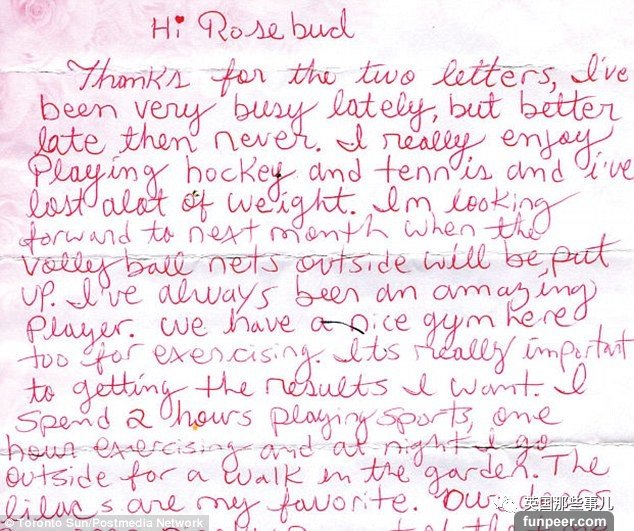 Hi Rosebud
Thanks for the two letters, I've
been very busy lately, but better
late then never. I really enjoy
Playing hockey and tennis and i've
lost alot of weight. Im looking
forward to next month when the
volley ball nets outside will be put
up. I've always been an amazing
Player. We have a nice gym here
too for exercising. Its really important
to getting the results I want. I
spend 2 hours playing sports, one
hour exercising and at night I go
outside for a walk in the garden. The
lilacs are my favorite. Our
© Toronto Sun/Postmedia Network
英国那些事儿
funpeer.com